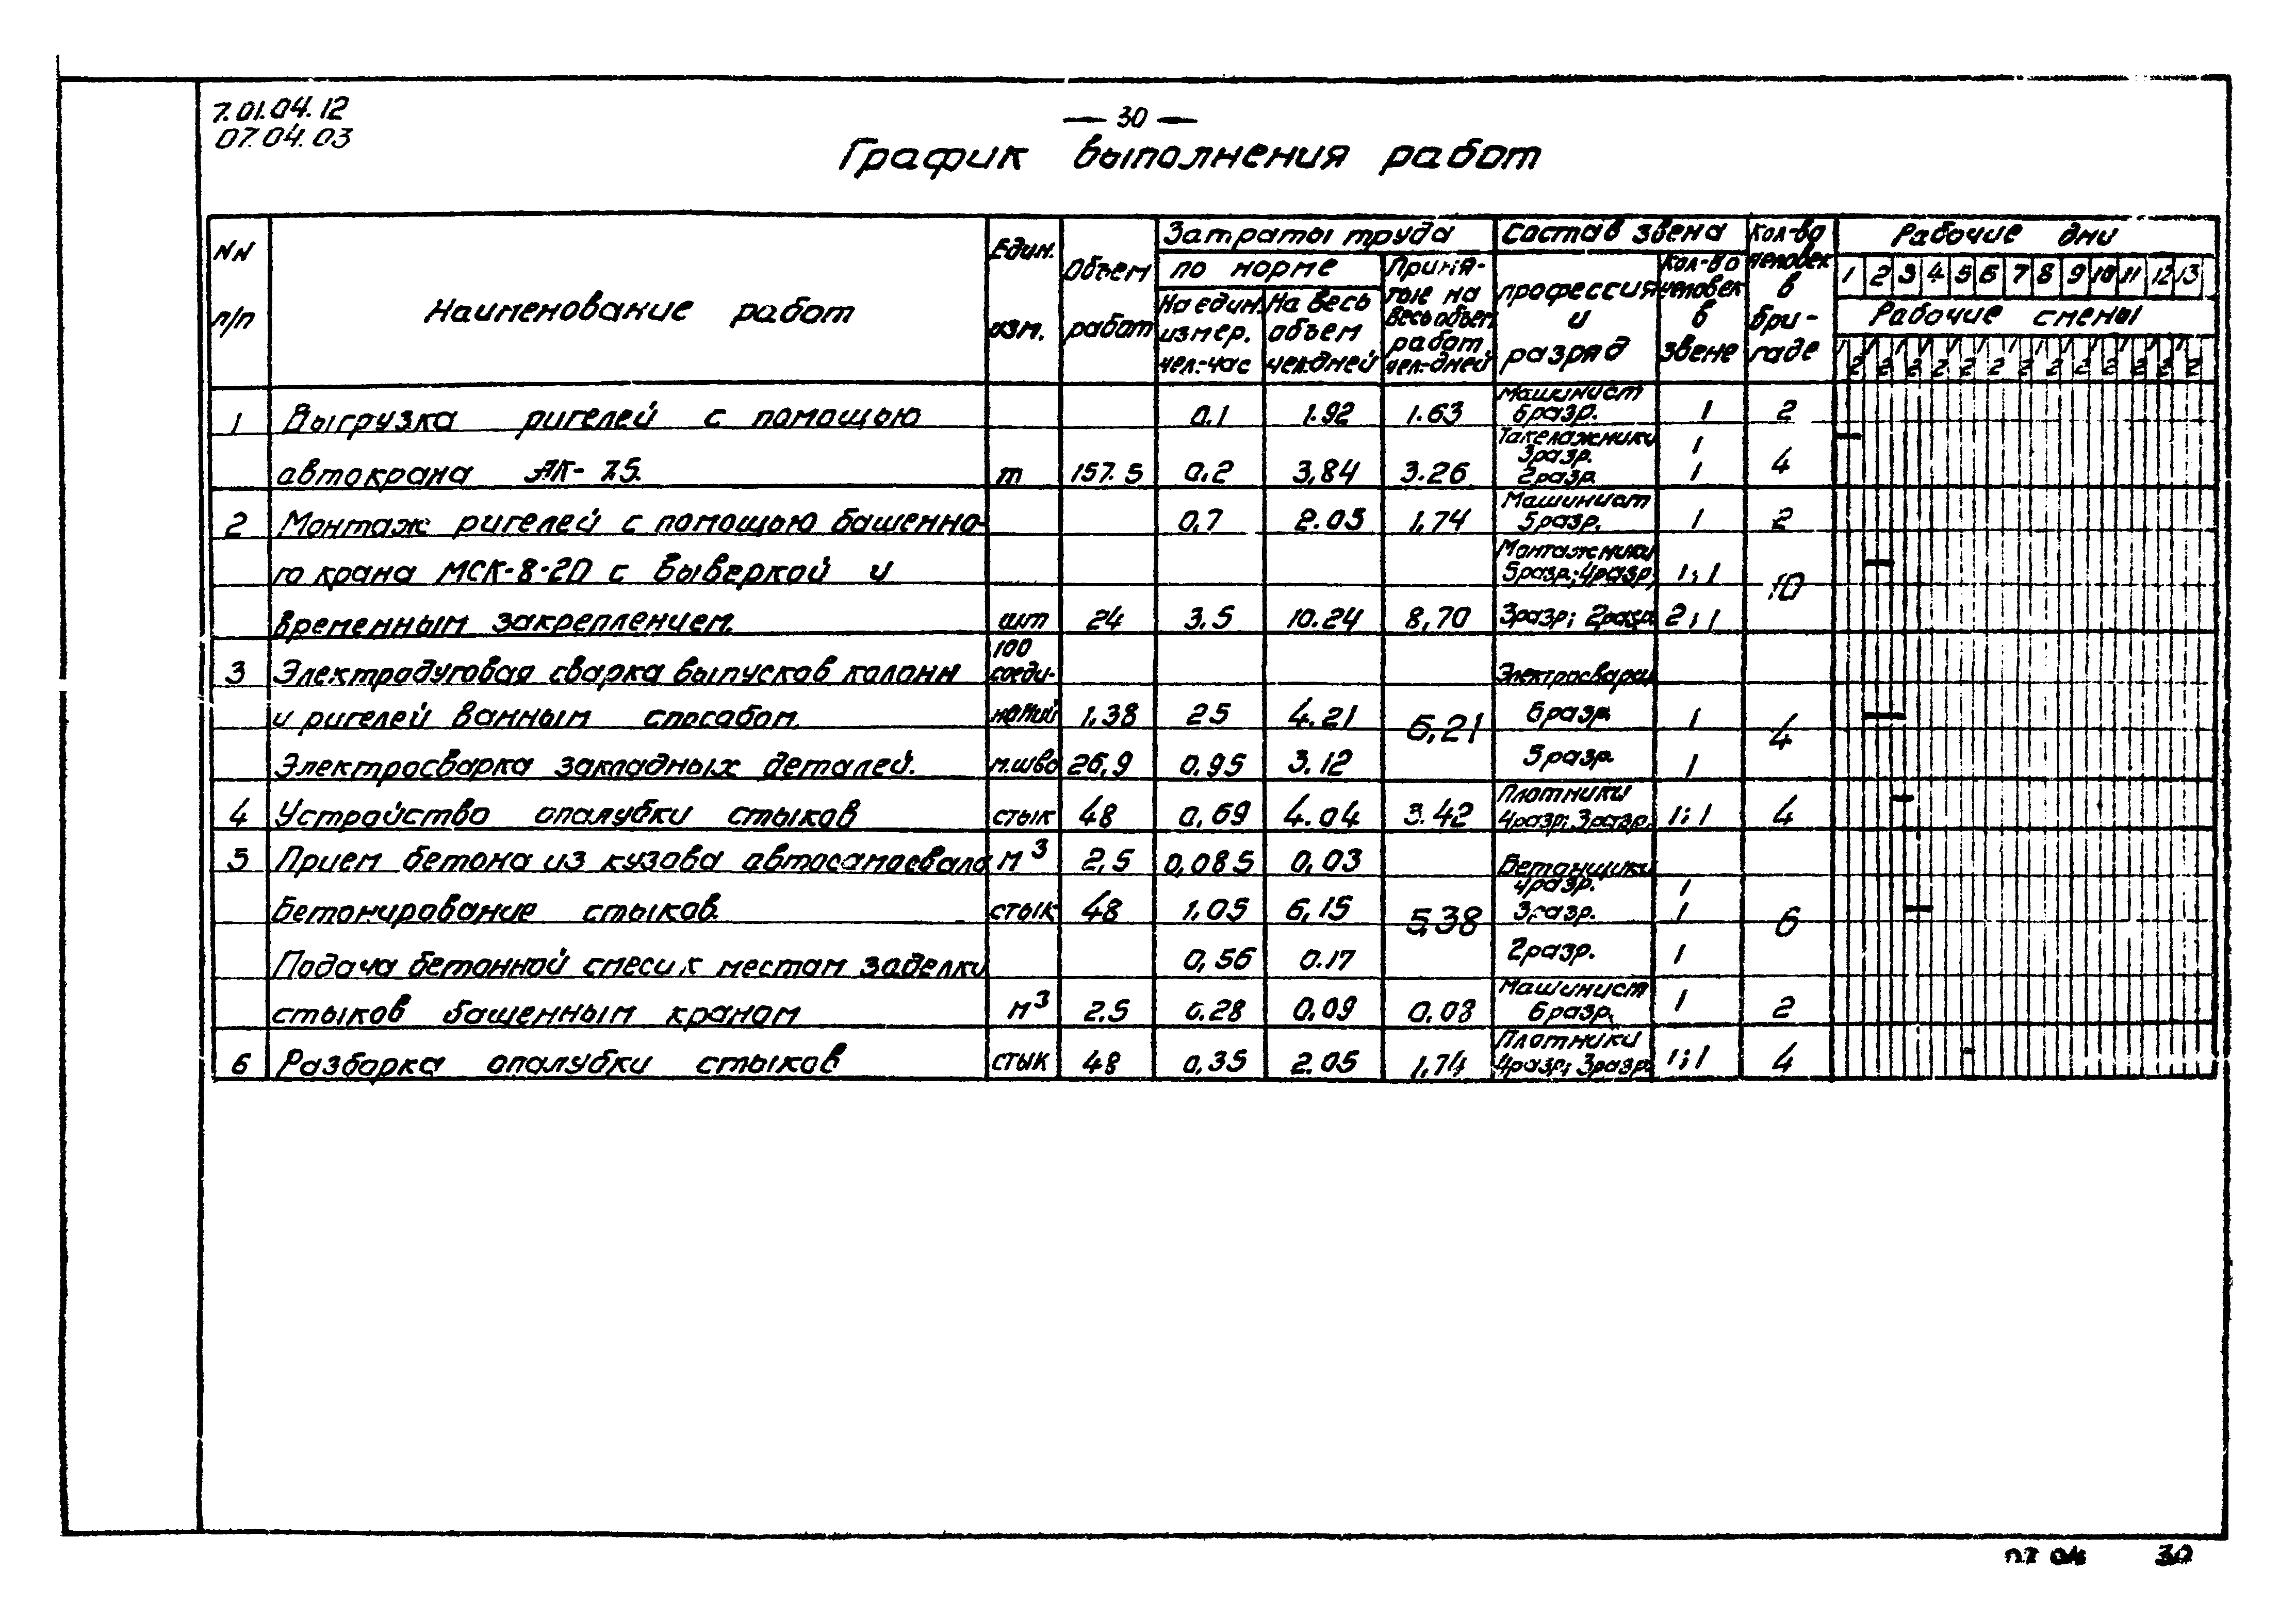 7.01.04.12
07.04.03
— 30 —
График выполнения работ
NN п/п
Наименование работ
Един. изм.
Объем работ
Затраты труда
по норме
На един. измер. чел.-час
На весь объем чел.-дней
Приня-тые на весь объем работ чел.-дней
Состав звена
профессия и разряд
Кол-во человек в звене
Кол-во человек в бри-гаде
Рабочие дни
1 2 3 4 5 6 7 8 9 10 11 12 13
Рабочие смены
1 2 1 2 1 2 1 2 1 2 1 2 1 2 1 2 1 2 1 2 1 2 1 2 1 2
Машинист
1 Выгрузка ригелей с помощью 0.1 1.92 1.63 6разр. 1 2
Такелажники 1
3разр.
автокрана АК-7.5. т 157.5 0.2 3,84 3.26 2разр. 1 4
Машинист
2 Монтаж ригелей с помощью башенно- 0,7 2.05 1,74 5разр. 1 2
Монтажники
го крана МСК-8-20 с выверкой и 5разр.; 4разр. 1; 1 10
временным закреплением. шт 24 3.5 10.24 8,70 3разр; 2разр. 2; 1
100
3 Электродуговая сварка выпусков колонн соеди- Электросварщ
и ригелей ванным способом. нений 1.38 25 4.21 6,21 6разр. 1 4
Электросварка закладных деталей. м.шва 26,9 0.95 3.12 5разр. 1
Плотники
4 Устройство опалубки стыков стык 48 0,69 4.04 3.42 4разр; 3разр. 1; 1 4
5 Прием бетона из кузова автосамосвала м3 2,5 0,085 0,03 Бетонщики
4разр. 1
Бетонирование стыков. стык 48 1.05 6,15 5,38 3разр. 1 6
Подача бетонной смеси к местам заделки 0,56 0.17 2разр. 1
Машинист
стыков башенным краном м3 2.5 0.28 0,09 0,08 6разр. 1 2
Плотники
6 Разборка опалубки стыков стык 48 0,35 2.05 1,74 4разр; 3разр. 1; 1 4
30